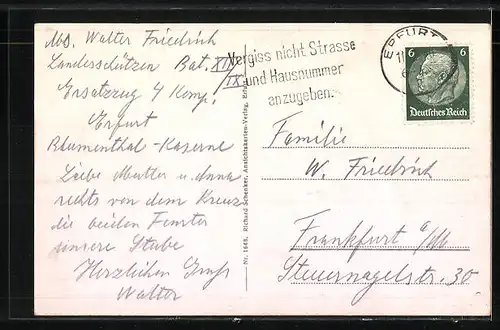 Abs. Walter Friedrich
Landesschützen Bat. XII/IX
Ersatzzug 4 Komp.
Erfurt
Blumenthal-Kaserne
Liebe Mutter u. Anna
rechts von dem Kreuz
die beiden Fenster
unsere Stube
Herzlichen Gruß
Walter
Nr. 1668. Richard Schenker, Ansichtskarten-Verlag, Erfurt
Vergiss nicht Strasse
und Hausnummer
anzugeben.
ERFURT
6 6
Deutsches Reich
Familie
W. Friedrich
Frankfurt a/M
Steuernagelstr. 30